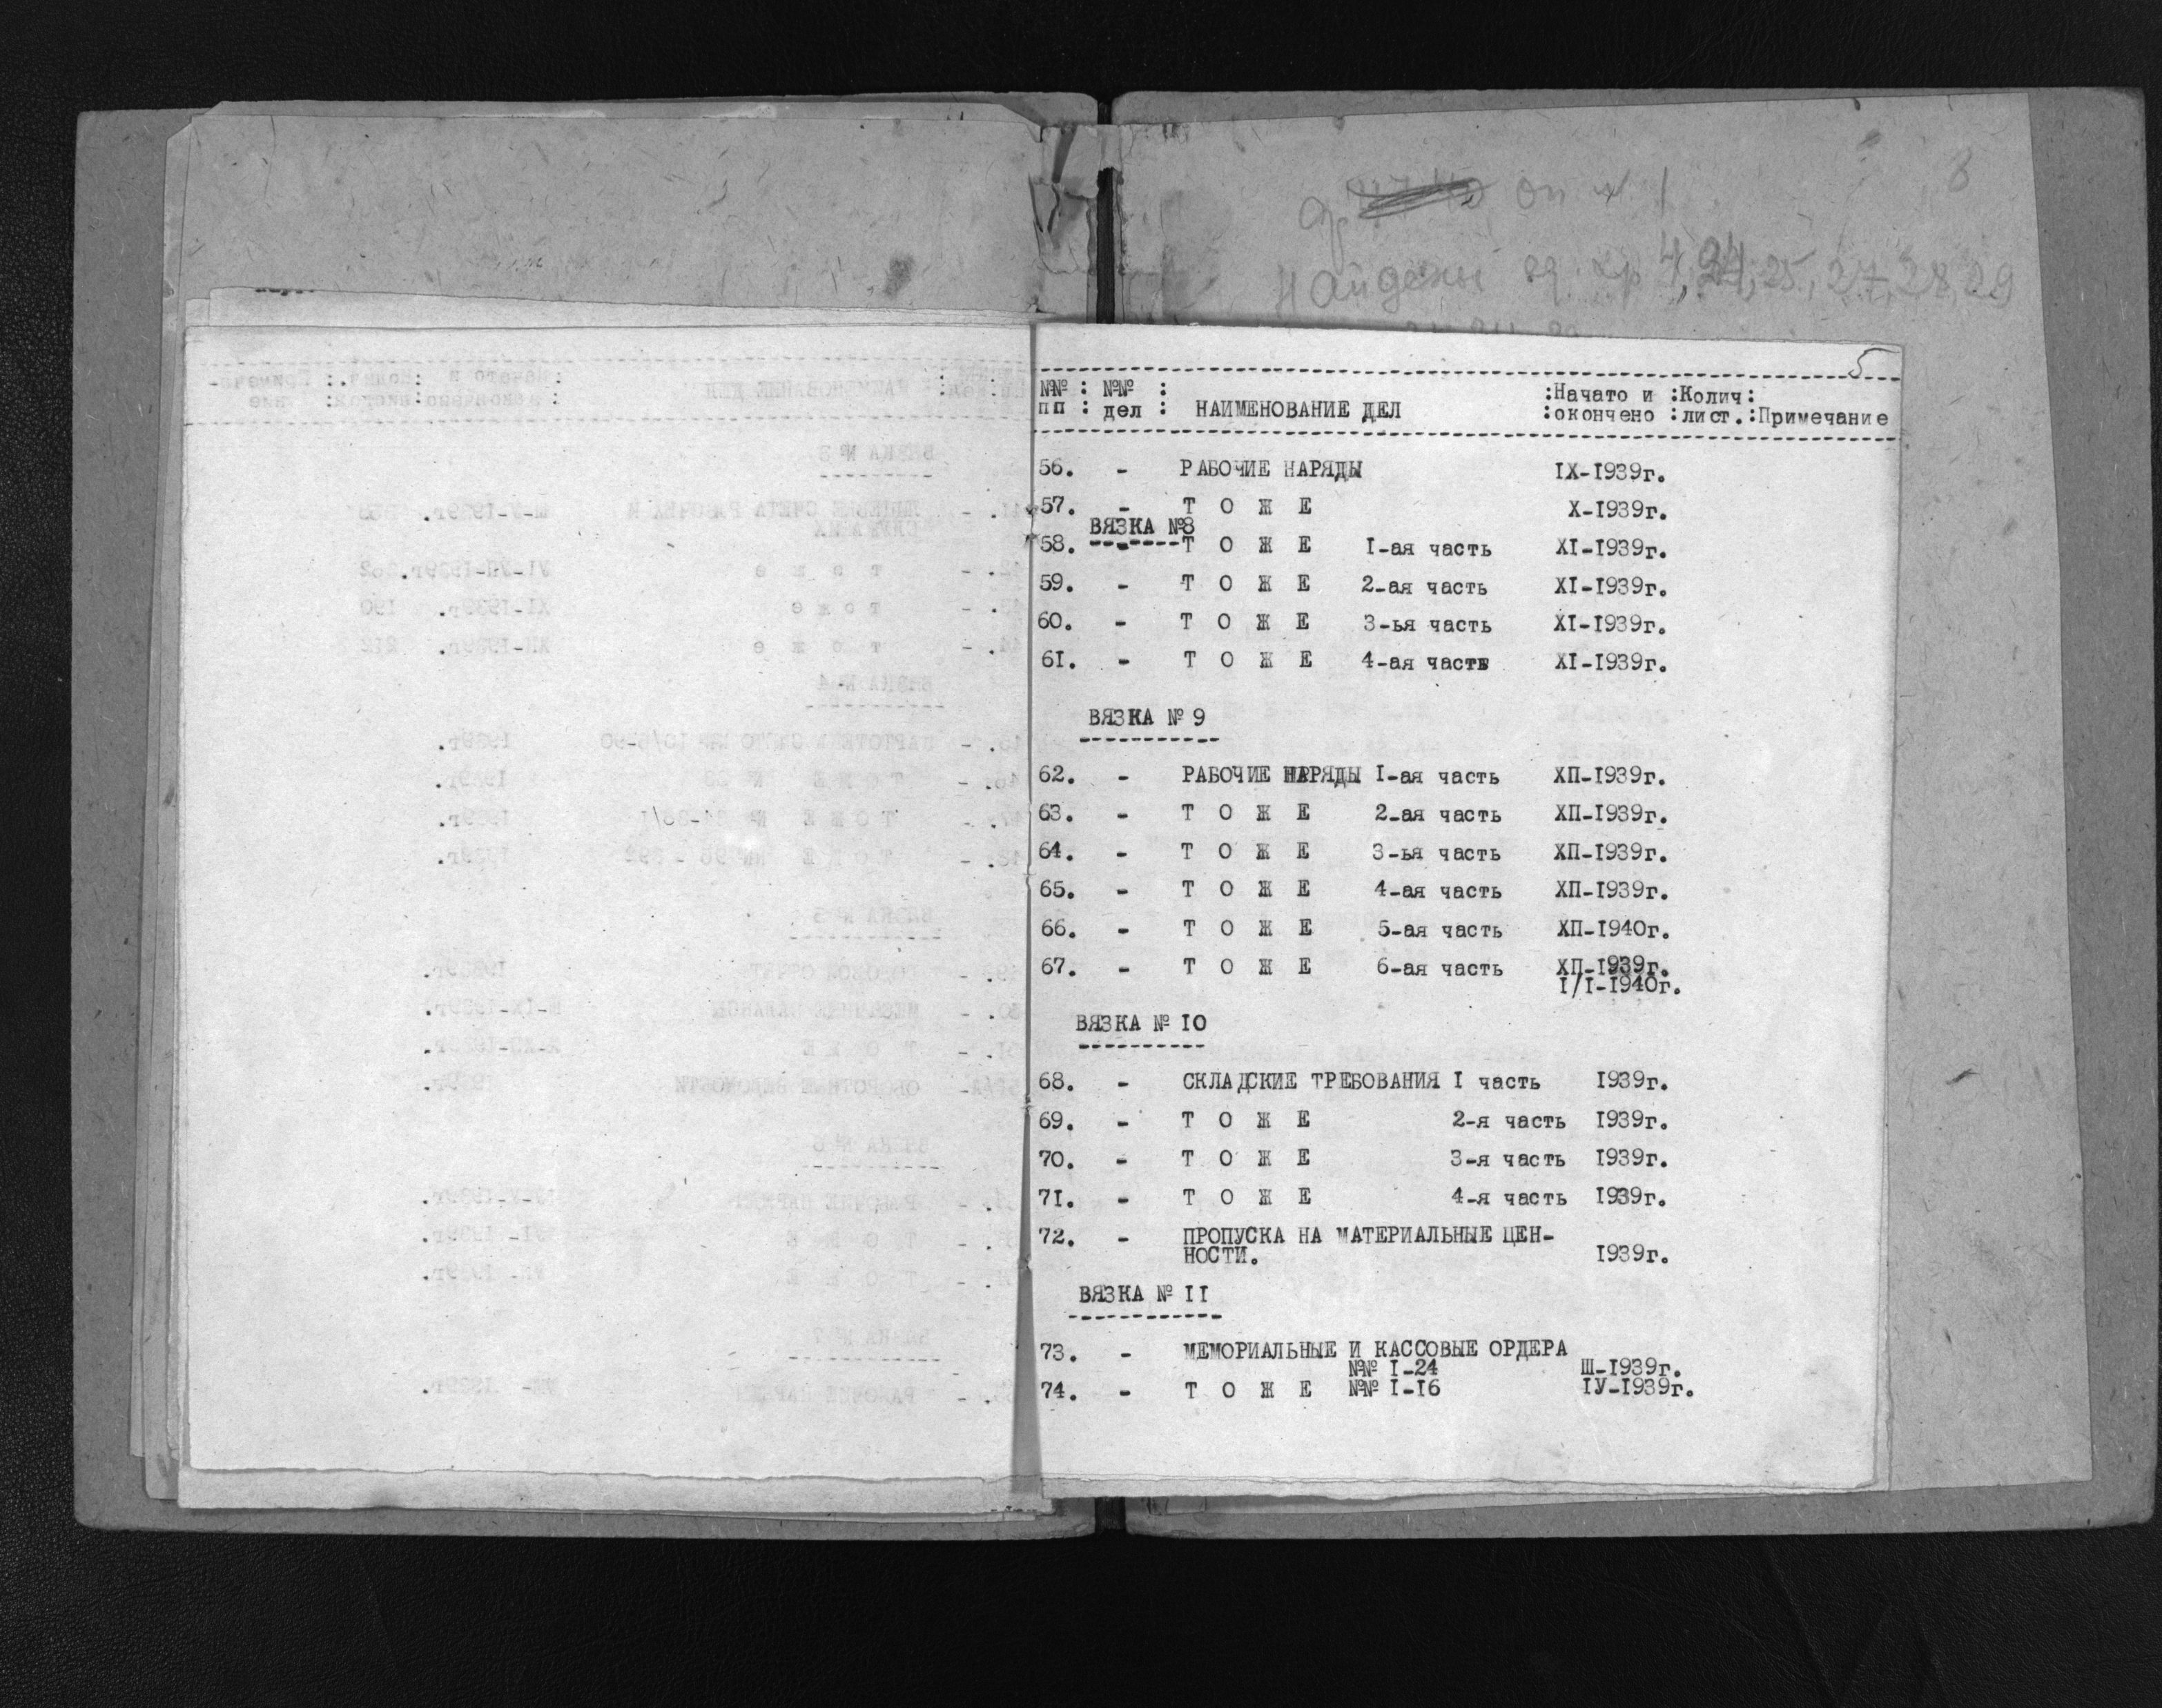 оп № 1
Найдены ед. хр 4, 24, 25, 27, 28, 29
5
№№ : №№ : :Начато и :Колич:
пп : дел : НАИМЕНОВАНИЕ ДЕЛ :окончено :лист.:Примечание
56. - РАБОЧИЕ НАРЯДЫ IX-I939г.
57. - Т О Ж Е X-I939г.
ВЯЗКА №8
58. - Т О Ж Е I-ая часть XI-I939г.
59. - Т О Ж Е 2-ая часть XI-I939г.
60. - Т О Ж Е 3-ья часть XI-I939г.
6I. - Т О Ж Е 4-ая часть XI-I939г.
ВЯЗКА № 9
62. - РАБОЧИЕ НАРЯДЫ I-ая часть ХП-I939г.
63. - Т О Ж Е 2-ая часть ХП-I939г.
64. - Т О Ж Е 3-ья часть ХП-I939г.
65. - Т О Ж Е 4-ая часть ХП-I939г.
66. - Т О Ж Е 5-ая часть ХП-I940г.
67. - Т О Ж Е 6-ая часть ХП-I939г.
I/I-I940г.
ВЯЗКА № I0
68. - СКЛАДСКИЕ ТРЕБОВАНИЯ I часть I939г.
69. - Т О Ж Е 2-я часть I939г.
70. - Т О Ж Е 3-я часть I939г.
7I. - Т О Ж Е 4-я часть I939г.
72. - ПРОПУСКА НА МАТЕРИАЛЬНЫЕ ЦЕН-
НОСТИ. I939г.
ВЯЗКА № II
73. - МЕМОРИАЛЬНЫЕ И КАССОВЫЕ ОРДЕРА
№№ I-24 Ш-I939г.
74. - Т О Ж Е №№ I-I6 IУ-I939г.